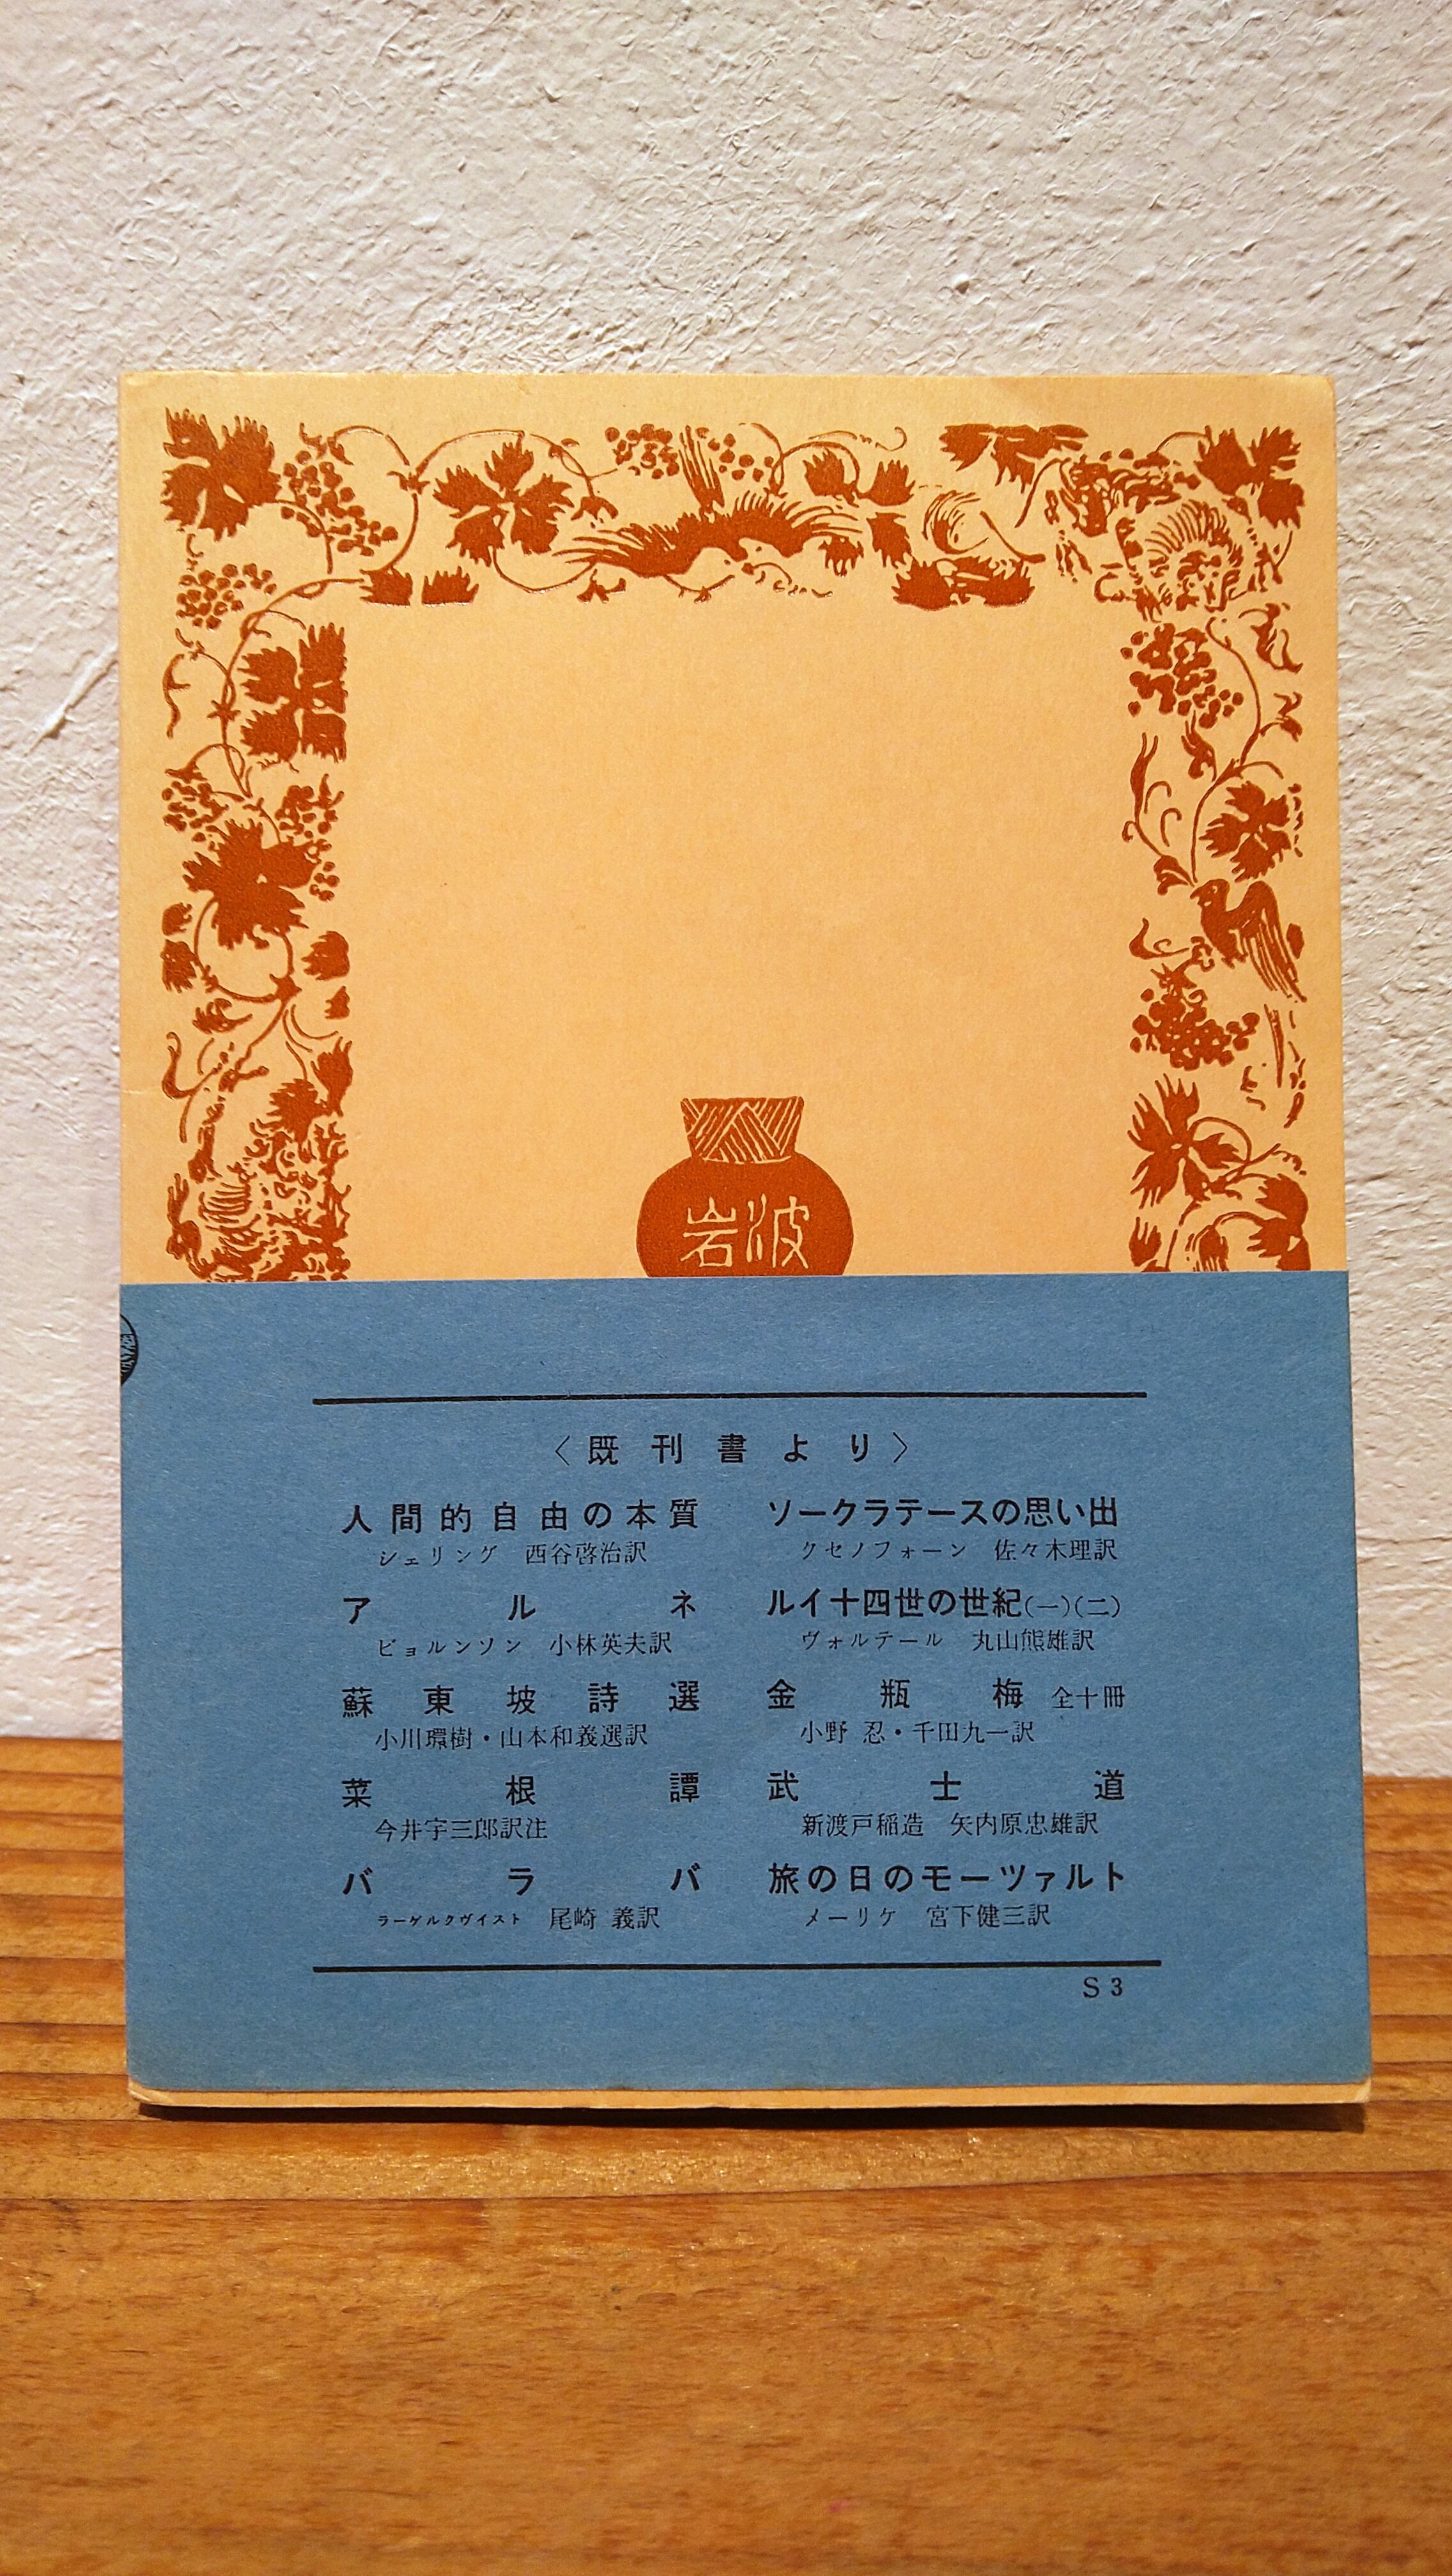 岩波
〈既刊書より〉
人間的自由の本質
シェリング 西谷啓治訳
アルネ
ビョルンソン 小林英夫訳
蘇東坡詩選
小川環樹・山本和義選訳
菜根譚
今井宇三郎訳注
バラバ
ラーゲルクヴィスト 尾崎 義訳
ソークラテースの思い出
クセノフォーン 佐々木理訳
ルイ十四世の世紀(一)(二)
ヴォルテール 丸山熊雄訳
金瓶梅 全十冊
小野 忍・千田九一訳
武士道
新渡戸稲造 矢内原忠雄訳
旅の日のモーツァルト
メーリケ 宮下健三訳
S 3